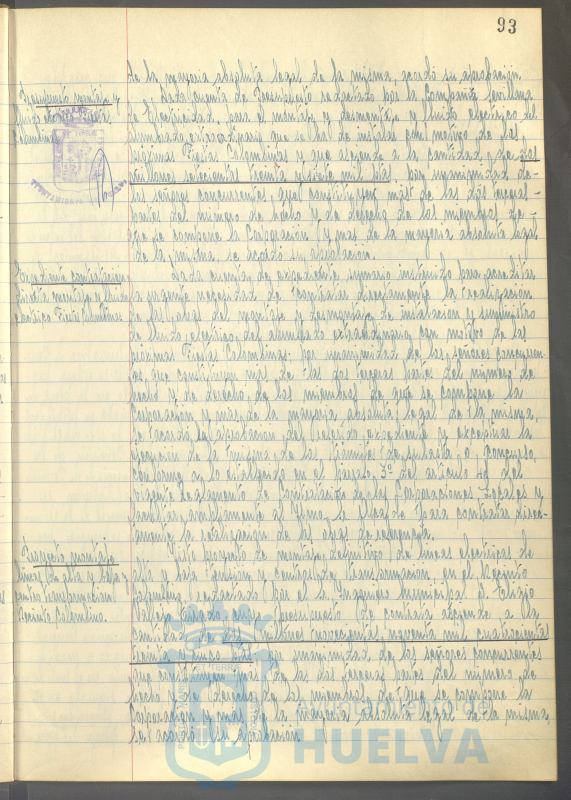 93
de la mayoria absoluta legal de la misma, acordó su aprobación.
Presupuesto montaje y
fluido
Colombinas
Dada cuenta de Presupuesto redactado por la Compañia Sevillana
de Electricidad, para el montaje y desmontaje y fluido electrico del
alumbrado extraordinario que se ha de instalar con motivo de las
próximas Fiestas Colombinas y que asciende a la cantidad de dos
millones setecientas treinta y siete mil ptas. por unanimidad de
los señores concurrentes, que constituyen más de las dos terceras
partes del número de hecho y de derecho de los miembros de
que se compone la Corporación y mas de la mayoria absoluta legal
de la misma, se acordó su aprobación.
Expediente contratación
directa montaje y fluido
electrico Fiestas Colombinas
Dada cuenta de expediente sumario instruido para acreditar
la urgente necesidad de contratar directamente la realización
de las obras del montaje y desmontaje de instalación y suministro
de fluido electrico del alumbrado extraordinario con motivo de las
próximas Fiestas Colombinas; por unanimidad de los señores concurren-
tes que constituyen más de las dos terceras partes del número de
hecho y de derecho de los miembros de que se compone la
Corporación y más de la mayoria absoluta legal de la misma,
se acordó la aprobación del referido expediente y exceptuar la
ejecución de la misma de los tramites de subasta o concurso
conforme a lo establecido en el párrafo 3º del articulo 41 del
vigente Reglamento de Contratación de las Corporaciones Locales y
facultar ampliamente al Iltmo. Sr. Alcalde para contratar direc-
tamente la realización de las obras de referencia.
Proyecto montaje
lineas de alta y baja y
centro transformación
Recinto Colombino.
Visto proyecto de montaje definitivo de lineas electricas de
alta y baja tensión y centro de transformación en el Recinto
Colombino, redactado por el Sr. Ingeniero Municipal D. Eligio
cuyo presupuesto de contrata asciende a la
cantidad de dos millones novecientas noventa mil cuatrocientas
treinta y cinco ptas. por unanimidad de los señores concurrentes
que constituyen más de las dos terceras partes del número de
hecho y de derecho de los miembros de que se compone la
Corporación y mas de la mayoria absoluta legal de la misma,
se acordó su aprobación
ayuntamiento de
HUELVA